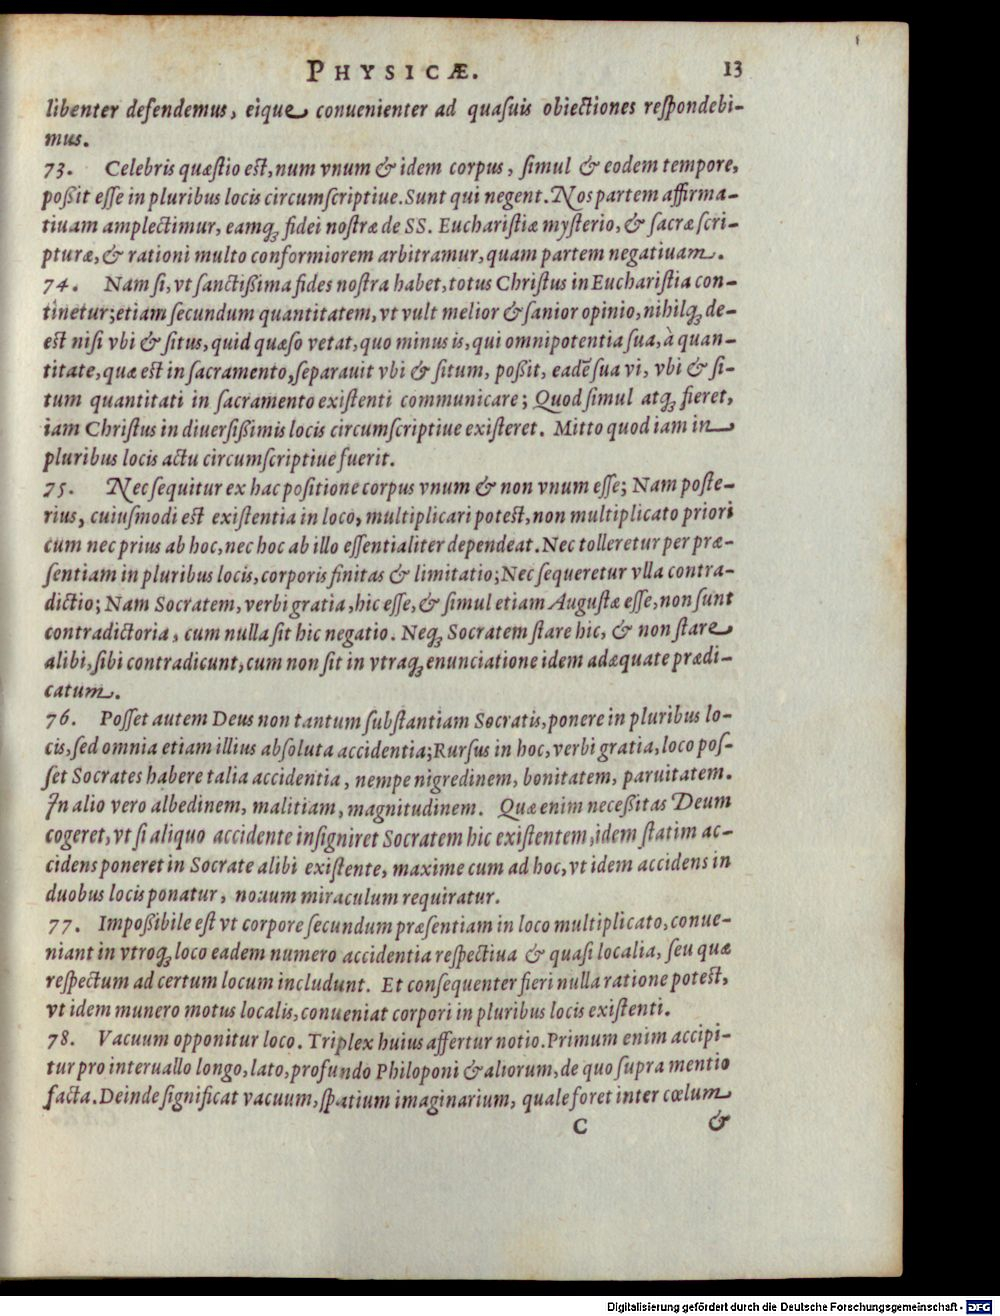 PHYSICÆ. 13
libenter defendemus, eique conuenienter ad quasuis obiectiones respondebi-
mus.
73. Celebris quæstio est, num vnum & idem corpus, simul & eodem tempore,
poßit esse in pluribus locis circumscriptiue. Sunt qui negent. Nos partem affirma-
tiuam amplectimur, eamq; fidei nostræ de SS. Eucharistiæ mysterio, & sacræ scri-
pturæ, & rationi multo conformiorem arbitramur, quam partem negatiuam.
74. Nam si, vt sanctißima fides nostra habet, totus Christus in Eucharistia con-
tinetur; etiam secundum quantitatem, vt vult melior & sanior opinio, nihilq; de-
est nisi vbi & situs, quid quæso vetat, quo minus is, qui omnipotentia sua, à quan-
titate, quæ est in sacramento, separauit vbi & situm, poßit, eadē sua vi, vbi & si-
tum quantitati in sacramento existenti communicare; Quod simul atq; fieret,
iam Christus in diuersißimis locis circumscriptiue existeret. Mitto quod iam in
pluribus locis actu circumscriptiue fuerit.
75. Nec sequitur ex hac positione corpus vnum & non vnum esse; Nam poste-
rius, cuiusmodi est existentia in loco, multiplicari potest, non multiplicato priori
cum nec prius ab hoc, nec hoc ab illo essentialiter dependeat. Nec tolleretur per præ-
sentiam in pluribus locis, corporis finitas & limitatio; Nec sequeretur vlla contra-
dictio; Nam Socratem, verbi gratia, hic esse, & simul etiam Augustæ esse, non sunt
contradictoria, cum nulla sit hic negatio. Neq; Socratem stare hic, & non stare
alibi, sibi contradicunt, cum non sit in vtraq; enunciatione idem adæquate prædi-
catum.
76. Posset autem Deus non tantum substantiam Socratis, ponere in pluribus lo-
cis, sed omnia etiam illius absoluta accidentia; Rursus in hoc, verbi gratia, loco pos-
set Socrates habere talia accidentia, nempe nigredinem, bonitatem, paruitatem.
In alio vero albedinem, malitiam, magnitudinem. Quæ enim neceßitas Deum
cogeret, vt si aliquo accidente insigniret Socratem hic existentem, idem statim ac-
cidens poneret in Socrate alibi existente, maxime cum ad hoc, vt idem accidens in
duobus locis ponatur, nouum miraculum requiratur.
77. Impoßibile est vt corpore secundum præsentiam in loco multiplicato, conue-
niant in vtroq; loco eadem numero accidentia respectiua & quasi localia, seu quæ
respectum ad certum locum includunt. Et consequenter fieri nulla ratione potest,
vt idem munero motus localis, conueniat corpori in pluribus locis existenti.
78. Vacuum opponitur loco. Triplex huius affertur notio. Primum enim accipi-
tur pro interuallo longo, lato, profundo Philoponi & aliorum, de quo supra mentio
facta. Deinde significat vacuum, spatium imaginarium, quale foret inter cœlum
C &
Digitalisierung gefördert durch die Deutsche Forschungsgemeinschaft - DFG